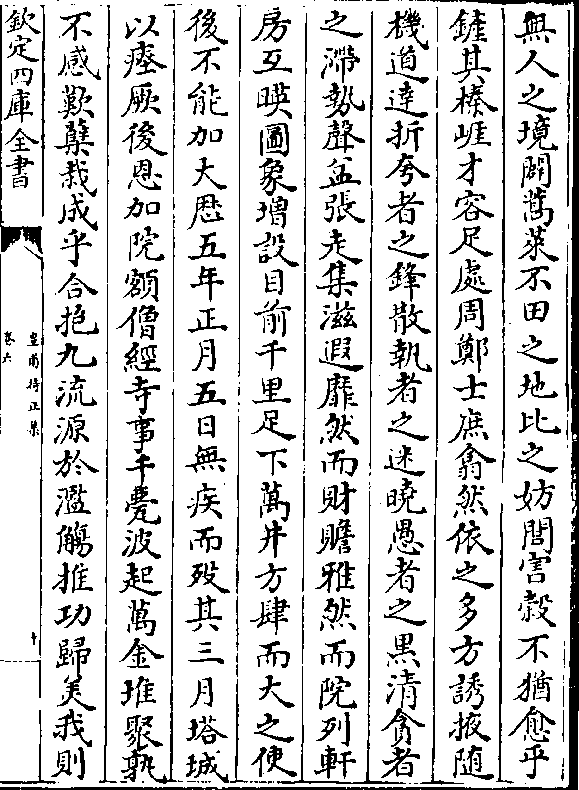 無人之境闢蒿萊不田之地比之妨閭害穀不猶愈乎
鏟其榛崕才容足處周鄭士庶翕然依之多方誘掖随
機道達折夸者之鋒散執者之迷曉愚者之黒清貪者
之滯勢聲益張走集滋遐靡然而財贍雅然而院列軒
房互暎圖象増設目前千里足下萬井方肆而大之使
後不能加大厯五年正月五日無疾而殁其三月塔城
以瘞厥後恩加院額僧經寺事千甍波起萬金堆聚孰
不感歎蘖栽成乎合抱九流源於濫觴推功歸美我則
欽定四庫全書
皇甫持正集
卷六
十